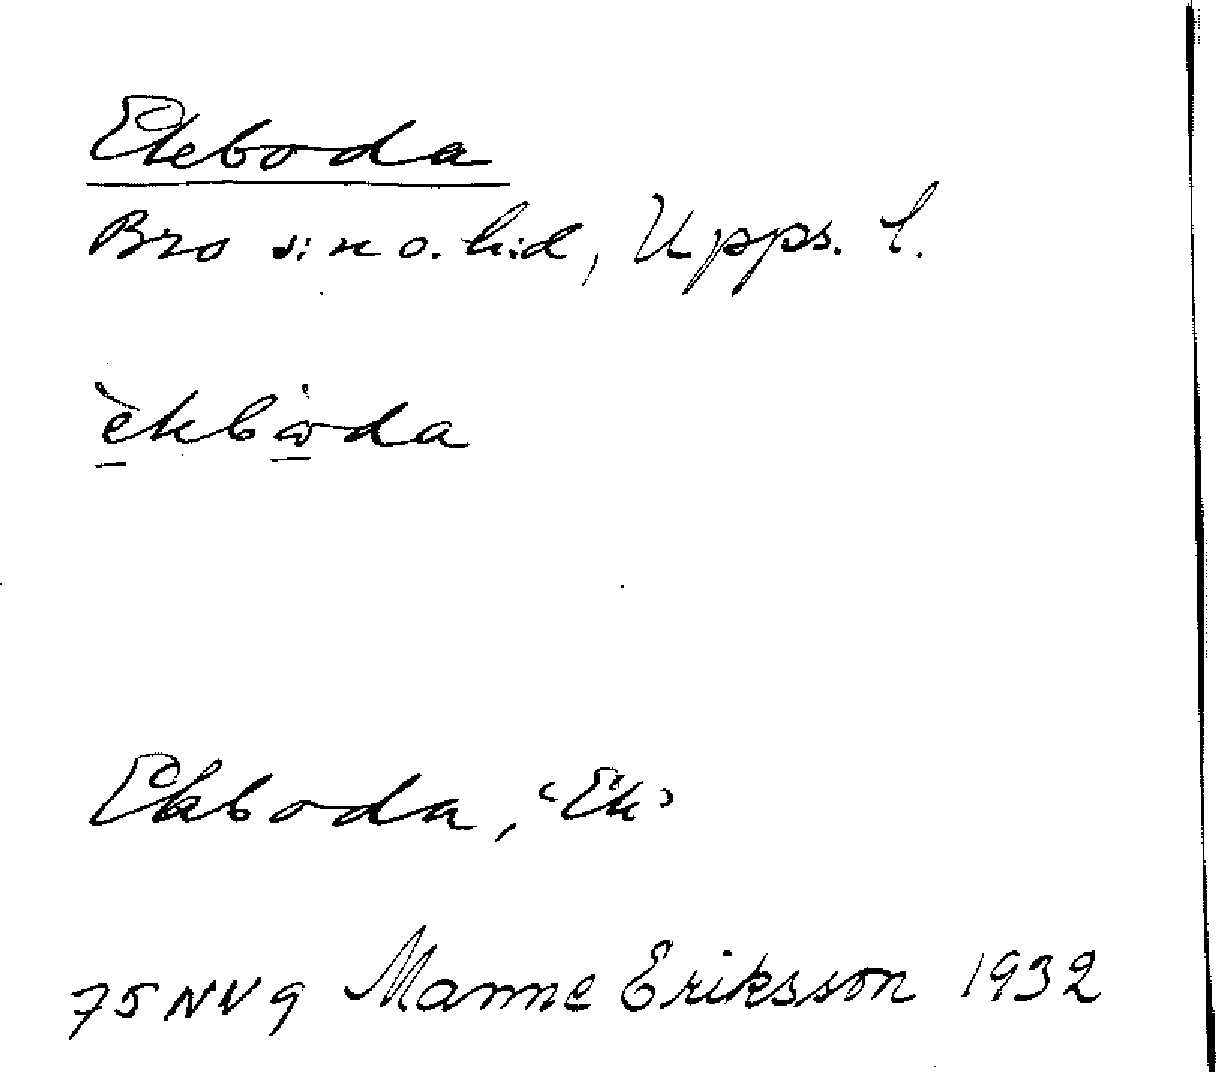 Ekeboda
Bro s:n o. h:d, Upps. l.
èkbòda
Ekboda, "Ek"
75 NV 9 Manne Eriksson 1932